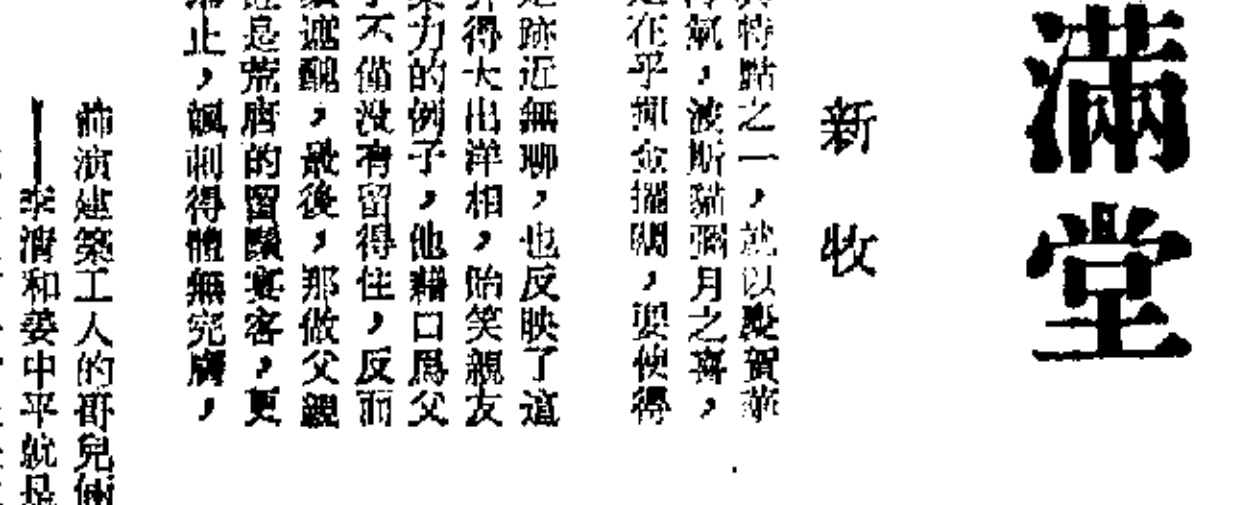 滿堂
新牧
特點之一，就以慶賀華
氣，波斯貓彌月之喜，
在乎揮金擺闊，要使得
跡近無聊，也反映了這
得大出洋相，貽笑親友
力的例子，他藉口爲父
不僅没有留得住，反而
遮醜，最後，那做父親
是荒唐的留鬚宴客，更
止，諷刺得體無完膚，
飾演建築工人的哥兒倆
——李濟和姜中平就是